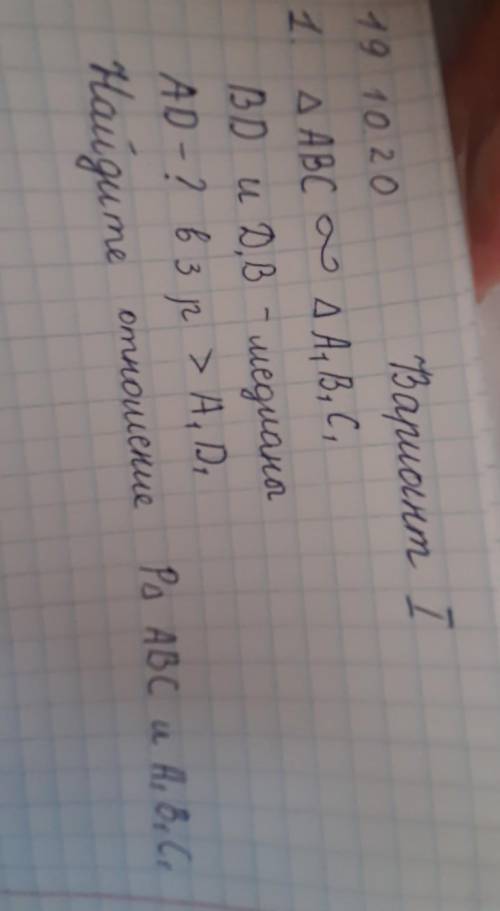 19 10.20
Вариант I
1. Δ ABC ∾ Δ A₁B₁C₁
BD и D₁B - медианы
AD - ? в 3 р > A₁D₁
Найдите отношение PΔ ABC и A₁B₁C₁